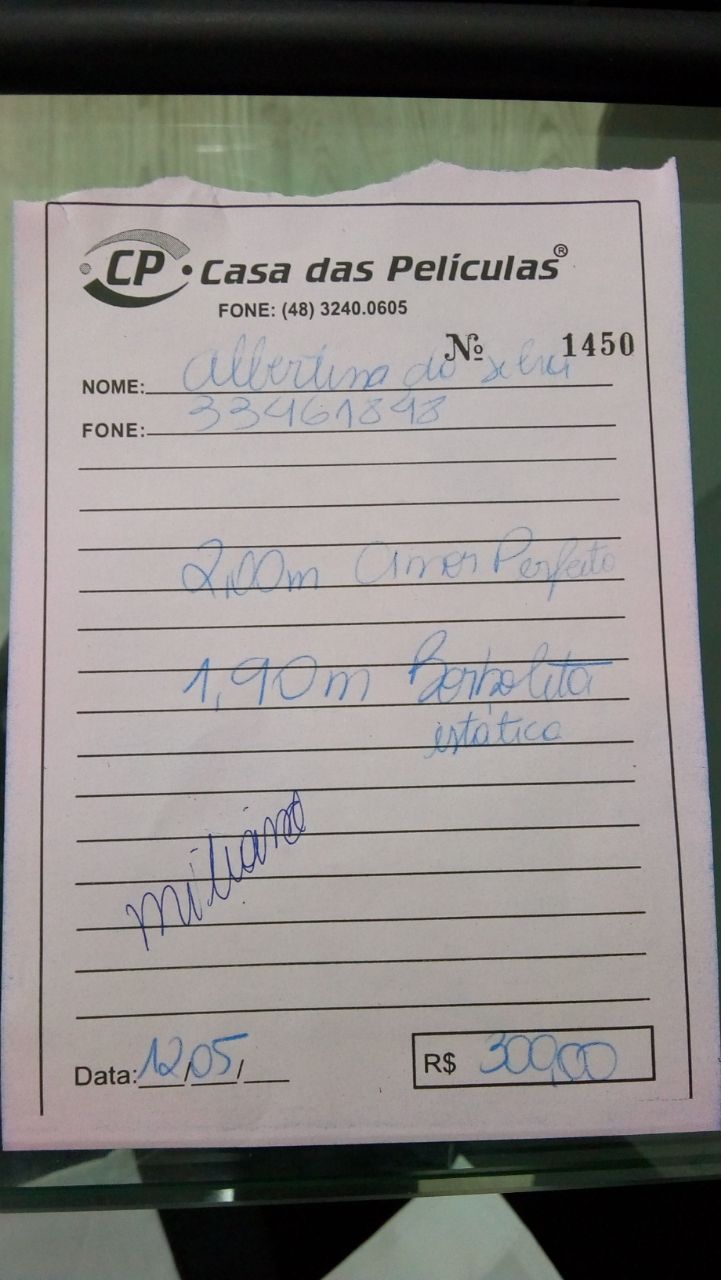 CP Casa das Películas®
FONE: (48) 3240.0605
Nº 1450
NOME: Albertina da Silva
FONE: 33461848
2,00m Amor Perfeito
1,90m Borboleta
estática
Data: 12/05/
R$ 300,00